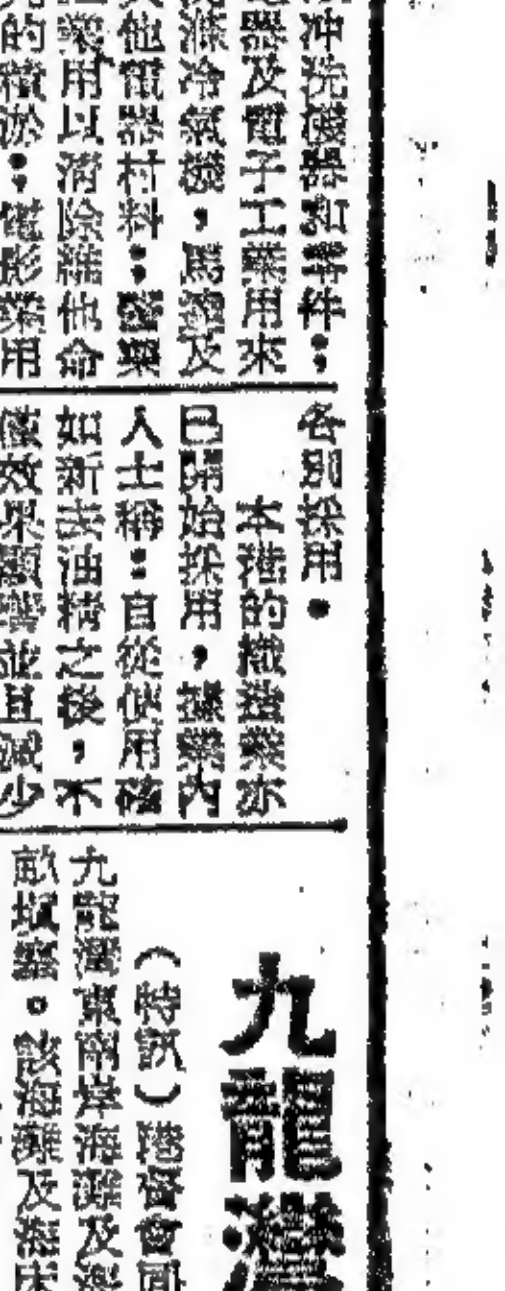 沖洗機器和零件；
器及電子工業用來
滌冷氣機，馬達及
他電器材料；
業用以清除維他命
的積淤；電影業用
各別採用。
本港的織造業亦
已開始採用，據業內
人士稱：自從使用
如新去油精之後，不
僅效果顯著並且減少
九龍灣
（特訊）港督會同
九龍灣東南岸海灘及海
畝填築。該海灘及海床